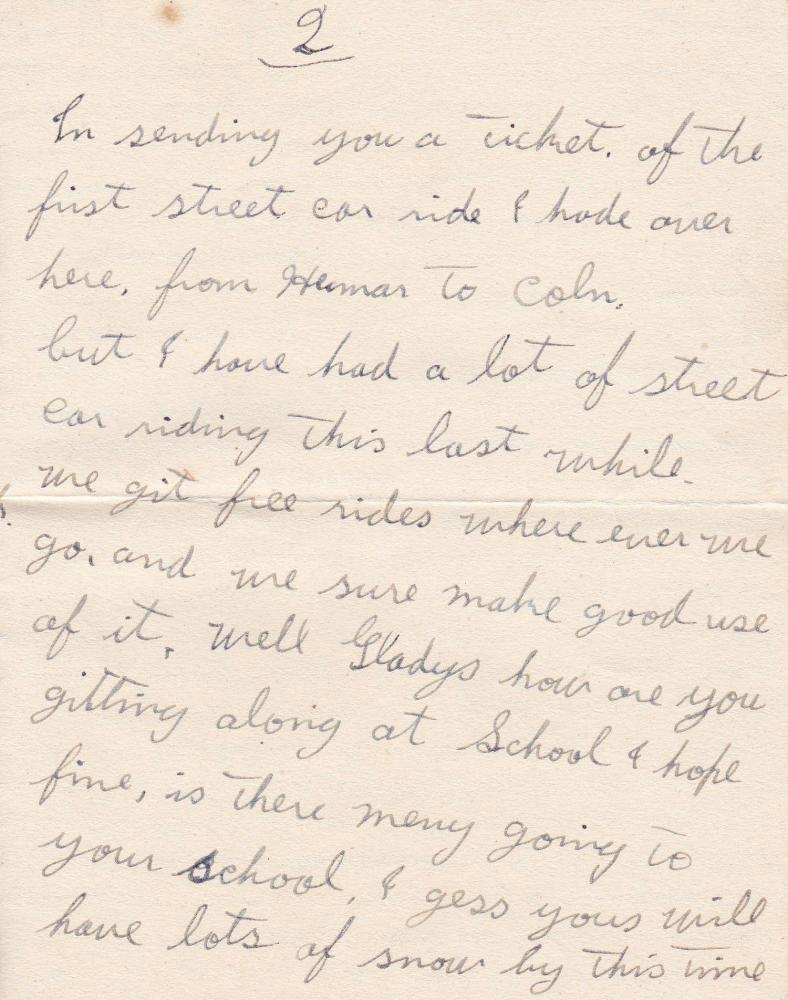 2
In sending you a ticket. of the
first street car ride I hade over
here, from Heumar to Coln.
but I have had a lot of street
car riding this last while.
we git free rides where ever we
go. and we sure make good use
of it, well Gladys how are you
gitting along at School I hope
fine, is there meny going to
your school, I gess yous will
have lots of snow by this time